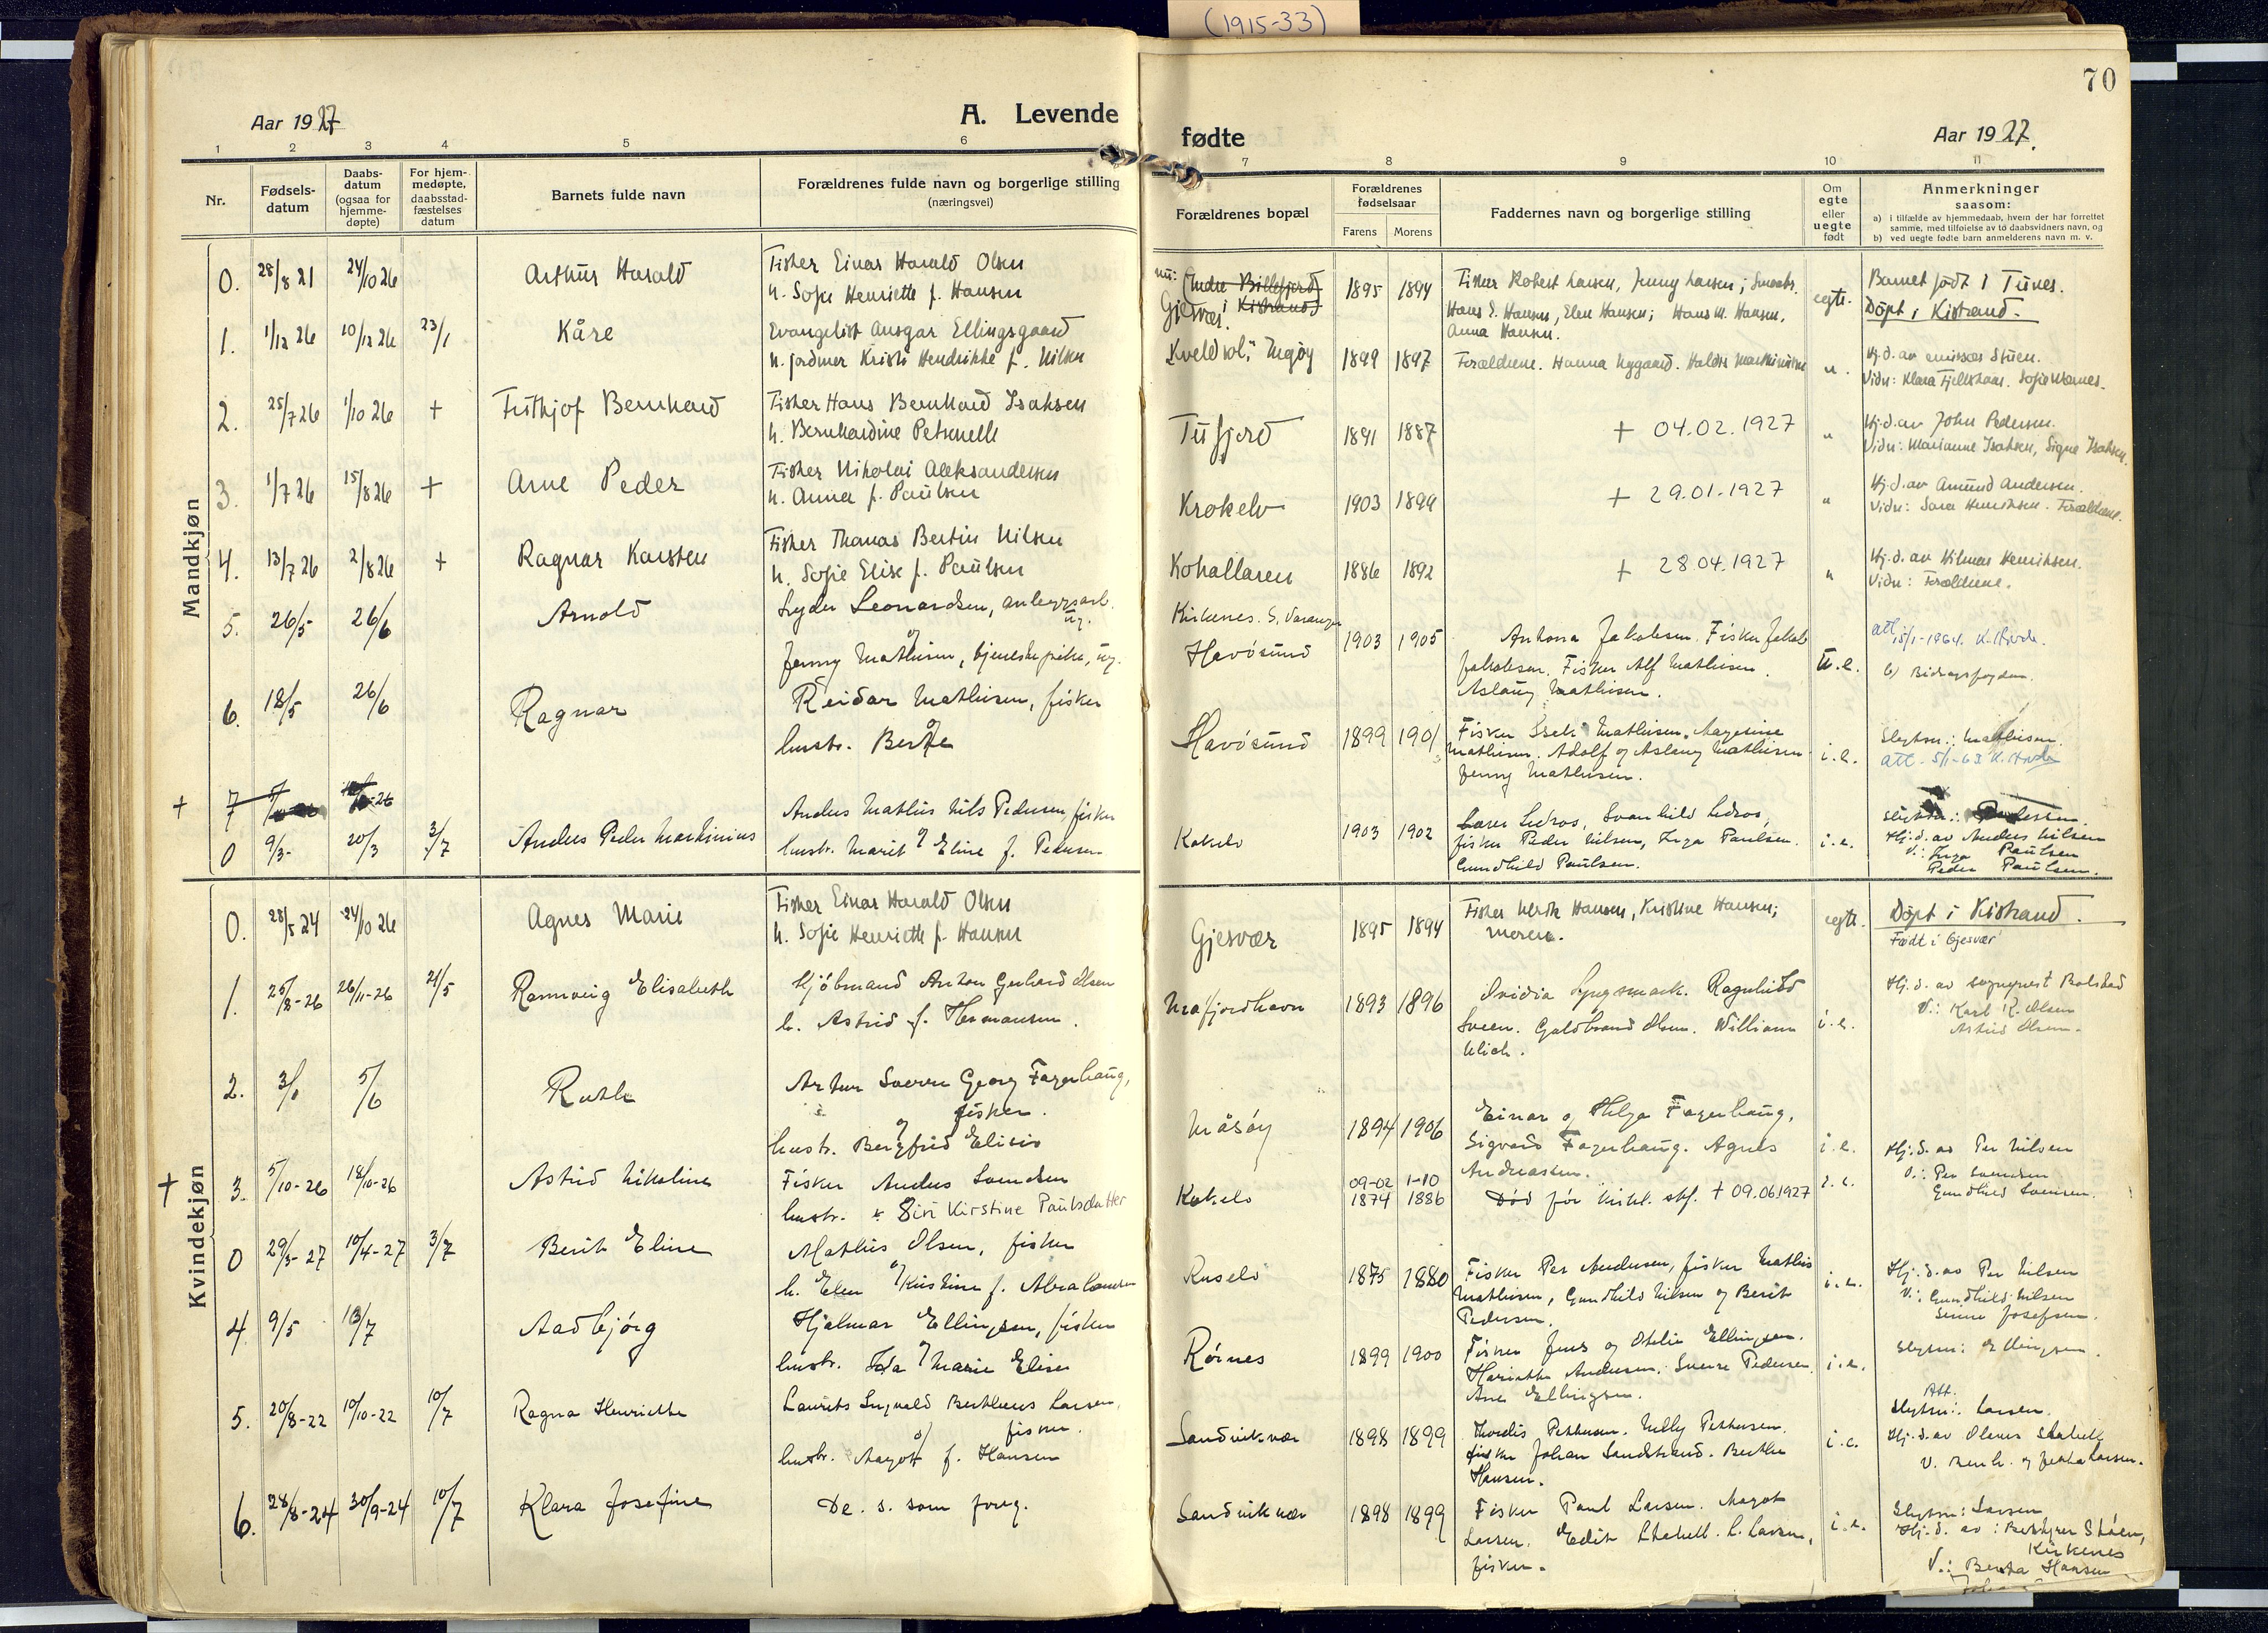 (1915-33)
70
Aar 1927
A. Levende
fødte
Aar 1927.
1 2 3 4 5 6 7 8 9 10 11
Nr.
Fødsels-
datum
Daabs-
datum
(ogsaa for
hjemme-
døpte)
For hjem-
medøpte,
daabsstad-
fæstelses
datum
Barnets fulde navn
Forældrenes fulde navn og borgerlige stilling
(næringsvei)
Forældrenes bopæl
Forældrenes
fødselsaar
Farens Morens
Faddernes navn og borgerlige stilling
Om
egte
eller
uegte
født
Anmerkninger
saasom:
a) i tilfælde av hjemmedaab, hvem der har forrettet
samme, med tilføielse av to daabsvidners navn, og
b) ved uegte fødte barn anmelderens navn m. v.
Mandkjøn
0. 28/8 21 24/10 26 Arthur Harald
Fisker Einar Harald Olsen
h. Sofie Henriette f. Hansen
nu: (Indre Billefjord
i Kistrand)
Gjesvær
1895 1894
Fisker Robert Larsen, Jenny Larsen;
Hans E. Hansen, Elen Hansen; Hans M. Hansen,
Anna Hansen.
egte.
Barnet født i Tunes.
Døpt i Kistrand.
1. 1/12 26 10/12 26 23/1 Kåre
Evangelist Ansgar Ellingsgaard
h. jordmor Kristi Hendrikke f. Nilsen
Kveldsol, Ingøy
1899 1897
Forældrene. Hanna Nygaard.
"
Hj.d. av emissær Stuen.
Vidn: Klara Fjeldhaas. Sofie Warnes.
2. 25/7 26 1/10 26 + Frithjof Bernhard
Fisker Hans Bernhard Isaksen
h. Bernhardine Petrenelle
Tufjord
1891 1887
+ 04.02.1927
"
Hj.d. av John Pedersen.
Vidn: Marianne Isaksen, Signe Isaksen.
3. 1/7 26 15/8 26 + Arne Peder
Fisker Nikolai Aleksandersen
h. Anna f. Paulsen
Krokelv
1903 1899
+ 29.01.1927
"
Hj.d. av Amund Andersen.
Vidn: Sara Henriksen. Forældrene.
4. 13/7 26 2/8 26 + Ragnar Karsten
Fisker Thomas Bertin Nilsen
h. Sofie Elise f. Paulsen
Kohallaren
1886 1892
+ 28.04.1927
"
Hj.d. av Hilmar Henriksen.
Vidn: Forældrene.
5. 26/5 26/6 Arnold
Lyder Leonardsen, anleggsarb.
ug.
og
Jenny Mathisen, tjenestepike, ug.
Kirkenes. S. Varanger
Havøsund
1903 1905
Antona Jakobsen. Fisker Jakob
Jakobsen. Fisker Alf Mathisen.
Aslaug Mathisen.
u.e.
att. 15/1-1964.
b) Bidragsfogden.
6. 18/5 26/6 Ragnar
Reidar Mathisen, fisker
og
hustr. Berthe
Havøsund
1899 1901
Fisker Mathisen.
Mathisen. Adolf og Aslaug Mathisen
Jenny Mathisen.
i.e.
Slegtsn.: Mathisen.
att. 5/1-63
+ 7
0 9/3- 20/3 3/7 Anders Peder Markinius
Anders Mathis Nils Pedersen fisker
og
hustr. Marit Eline f. Pedersen
Kokelv
1903 1902
fisker Peder Nilsen, Inga Paulsen.
Gundhild Paulsen.
i.e.
Hj.d. av Anders Nilsen
V.: Inga Paulsen
Peder Paulsen.
Kvindekjøn
0. 28/5 24 24/10 26 Agnes Marie
Fisker Einar Harald Olsen
h. Sofie Henriette f. Hansen
Gjesvær
1895 1894
Fisker Ulrik Hansen, Kristine Hansen;
Moren.
egte.
Døpt i Kistrand.
Født i Gjesvær
1. 25/8-26 26/11-26 21/5 Rannveig Elisabeth
Kjøbmand Anton Gerhard Olsen
h. Astrid f. Hermansen.
Mafjordhavn
1893 1896
Lyngsmark. Ragnhild
Sveen. Guldbrand Olsen. William
Ulich.
i.e.
Hj.d. av sogneprest Bolstad
V.: Karl K. Olsen
Astrid Olsen.
2. 5/6 Ruth
Artur Sverre Georg Fagerhaug,
fisker.
og
hustr. Bergfrid Elisiv
Måsøy
1894 1906
Einar og Helga Fagerhaug.
Sigvard Fagerhaug. Agnes
Andreassen.
i.e.
+ 3. 5/10-26 18/10-26 Astrid Nikoline
Fisker Anders Somdsen
hustr. Siri Kirstine Paulsdatter
Kokelv
09-02 1-10
1874 1886
Død før kirkl. stf. + 09.06.1927
i.e.
Hj.d. av Per Nilsen
V.: Per Somdsen
Gundhild Somsen.
0 29/3-27 10/4-27 3/7 Berit Eline
Mathis Olsen, fisker
og
h. Elen Kristine f. Abrahamsen
Ruselv
1875 1880
Fisker Per Andersen, fisker Mathis
Mathisen, Gundhild Nilsen og Berit
Pedersen.
i.e.
Hj.d. av Per Nilsen
V.: Gundhild Nilsen
Josefsen.
4. 9/5 13/7 Aadbjørg
Hjalmar Ellingsen, fisker
og
hustr. Ida Marie Elise
Rørnes
1899 1900
Fisker Jens og Otelie Ellingsen.
Hariette Andersen. Sverre Pedersen
Ane Ellingsen.
i.e.
Slegtsn: Ellingsen.
5. 20/8-22 10/10-22 10/7 Ragna Henriette
Laurits Sigvald Bertheus Larsen,
fisker.
og
hustr. Magot f. Hansen
Sandvikvær
1898 1899
Thordis Pettersen. Nelly Pettersen.
fisker Johan Sandstrand. Berthe
Hansen.
i.e.
Att.
Slegtsn.: Larsen.
Hj.d. av Olaus Stabell
V. Bernh. og Larsen.
6. 28/8-24 30/9-24 10/7 Klara Josefine
De. s. som forrg.
Sandvikvær
1898 1899
Fisker Paul Larsen. Magot
Larsen. Edit Stabell. L. Larsen,
fisker.
i.e.
Slegtsn: Larsen
Hj.d. av: Bestyrer Støen,
Kirkenes
V.: Berta Hansen